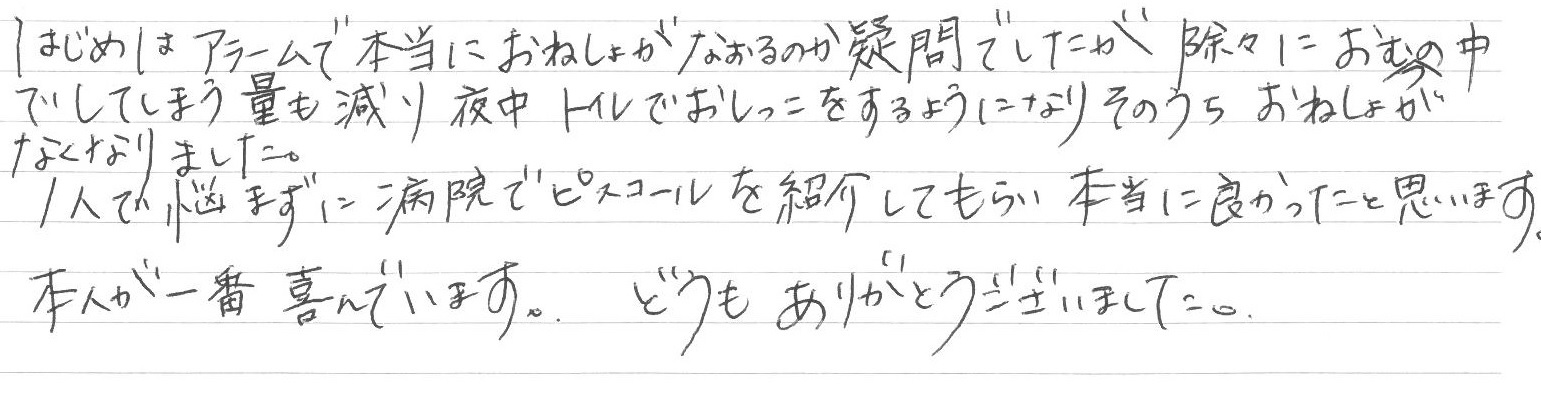 はじめは アラームで 本当に おねしょが なおるのか 疑問でしたが 除々に おむつの中
でしてしまう 量も 減り 夜中 トイレでおしっこをするようになり そのうち おねしょが
なくなりました。
1人で 悩まずに 病院で ピスコールを 紹介してもらい 本当に良かったと思います。
本人が一番 喜んでいます。 どうも ありがとうございました。